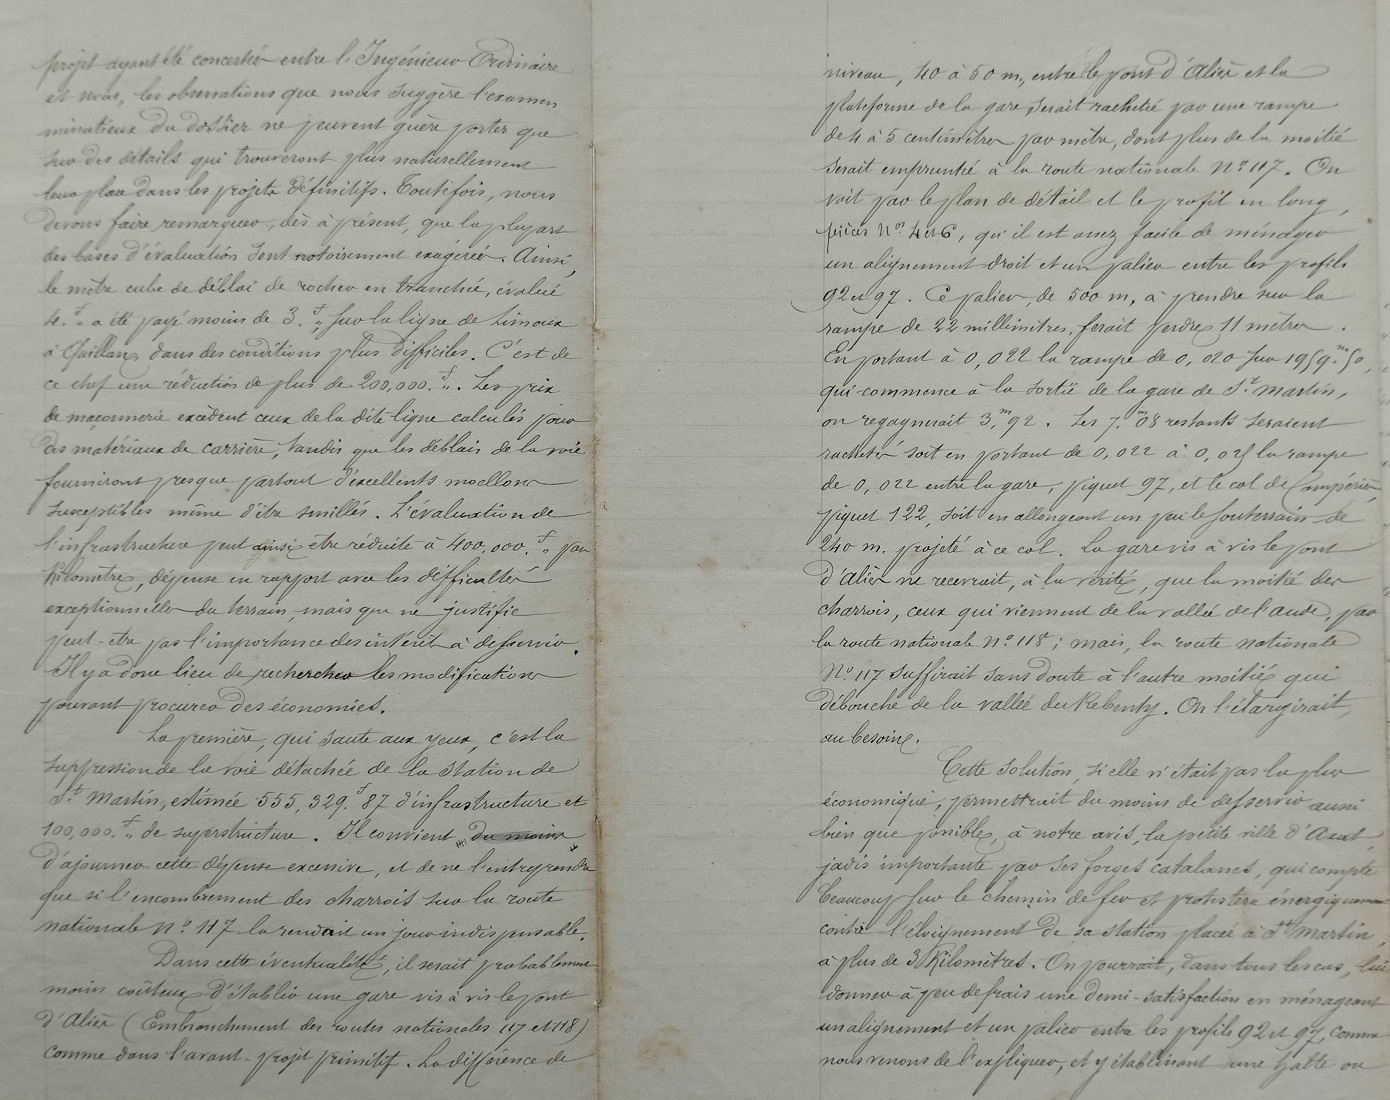 projet ayant été concerté entre l'Ingénieur Ordinaire
et nous, les observations que nous suggère l'examen
minutieux du dossier ne peuvent guère porter que
sur des détails qui trouveront plus naturellement
leur place dans les projets définitifs. Toutefois, nous
devons faire remarquer, dès à présent, que la plupart
des bases d'évaluation sont notoirement exagérées. Ainsi,
le mètre cube de déblai de rocher en tranchée, évalué
4.f " a été payé moins de 3.f " sur la ligne de Limoux
à Quillan, dans des conditions plus difficiles. C'est de
ce chef une réduction de plus de 200,000.f ". Les prix
de maçonnerie excèdent ceux de la dite ligne calculés pour
des matériaux de carrière, tandis que les déblais de la voie
fourniront presque partout d'excellents moellons
susceptibles même d'être smillés. L'évaluation de
l'infrastructure peut ainsi être réduite à 400,000.f " par
Kilomètre, dépense en rapport avec les difficultés
exceptionnelles du terrain, mais que ne justifie
peut-être pas l'importance des intérêts à desservir.
Il y a donc lieu de rechercher les modifications
pouvant procurer des économies.
La première, qui saute aux yeux, c'est la
suppression de la voie détachée de la station de
St. Martin, estimée 555,329.f 87 d'infrastructure et
100,000.f " de superstructure. Il convient du moins
d'ajourner cette dépense excessive, et de ne l'entreprendre
que si l'encombrement des charrois sur la route
nationale No. 117 la rendait un jour indispensable.
Dans cette éventualité, il serait probablement
moins coûteux d'établir une gare vis à vis le pont
d'Aliès (Embranchement des routes nationales 117 et 118)
comme dans l'avant-projet primitif. La différence de
niveau, 40 à 50 m, entre le pont d'Aliès et la
plateforme de la gare serait rachetée par une rampe
de 4 à 5 centimètres par mètre, dont plus de la moitié
serait empruntée à la route nationale No. 117. On
voit par le plan de détail et le profil en long,
pièces Nos. 4 et 6, qu'il est assez facile de ménager
un alignement droit et un palier entre les profils
92 et 97. Ce palier, de 500 m, à prendre sur la
rampe de 22 millimètres, ferait perdre 11 mètres.
En portant à 0,022 la rampe de 0,020 sur 1959.m 50,
qui commence à la sortie de la gare de St. Martin,
on regagnerait 3,m 92. Les 7,m 08 restants seraient
rachetés soit en portant de 0,022 à 0,025 la rampe
de 0,022 entre la gare, piquet 97, et le col de Campérié,
piquet 122, soit en allongeant un peu le souterrain de
240 m. projeté à ce col. La gare vis à vis le pont
d'Aliès ne recevrait, à la vérité, que la moitié des
charrois, ceux qui viennent de la vallée de l'aude, par
la route nationale No. 118; mais, la route nationale
No. 117 suffirait sans doute à l'autre moitié qui
débouche de la vallée du Rebenty. On l'élargirait,
au besoin.
Cette solution, si elle n'était pas la plus
économique, permettrait du moins de desservir aussi
bien que possible, à notre avis, la petite ville d'Axat,
jadis importante par ses forges catalanes, qui compte
beaucoup sur le chemin de fer et protestera énergiquement
contre l'éloignement de sa station placée à St. Martin,
à plus de 3 Kilomètres. On pourrait, dans tous les cas, lui
donner à peu de frais une demi-satisfaction en ménageant
un alignement et un palier entre les profils 92 et 97, comme
nous venons de l'expliquer, et y établissant une halte ou